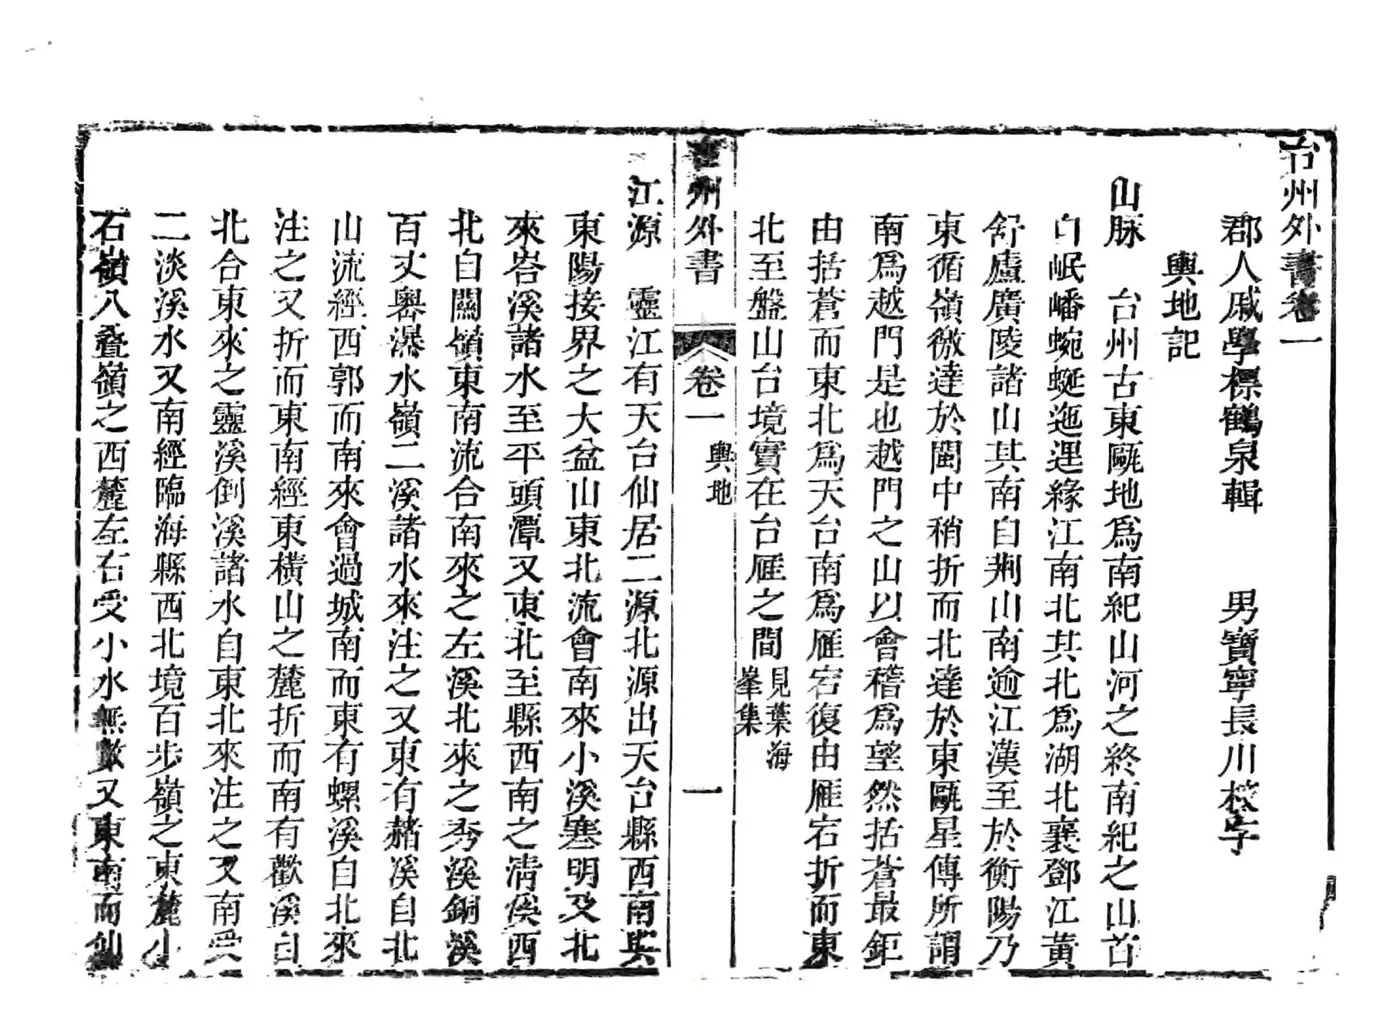 台州外書卷一
郡人戚學標鶴泉輯　男寶寧長川校字
輿地記
山脉　台州古東甌地爲南紀山河之終南紀之山首
自岷嶓蜿蜒迤邐緣江南北其北爲湖北襄鄧江黃
舒廬廣陵諸山其南自荆山南逾江漢至於衡陽乃
東循嶺徼達於閩中稍折而北達於東甌星傳所謂
南爲越門是也越門之山以會稽爲望然括蒼最鉅
由括蒼而東北爲天台南爲雁宕復由雁宕折而東
北至盤山台境實在台雁之間見葉海
峯集
台州外書
卷一
輿地
一
江源　靈江有天台仙居二源北源出天台縣西南與
東陽接界之大盆山東北流會南來小溪寒明及北
來峇溪諸水至平頭潭又東北至縣西南之清溪西
北自關嶺東南流合南來之左溪北來之秀溪銅溪
百丈嶴瀑水嶺二溪諸水來注之又東有赭溪自北
山流經西郭而南來會過城南而東有螺溪自北來
注之又折而東南經東橫山之麓折而南有歡溪自
北合東來之靈溪倒溪諸水自東北來注之又南受
二淡溪水又南經臨海縣西北境百步嶺之東麓小
石嶺八叠嶺之西麓左右受小水無數又東南而仙